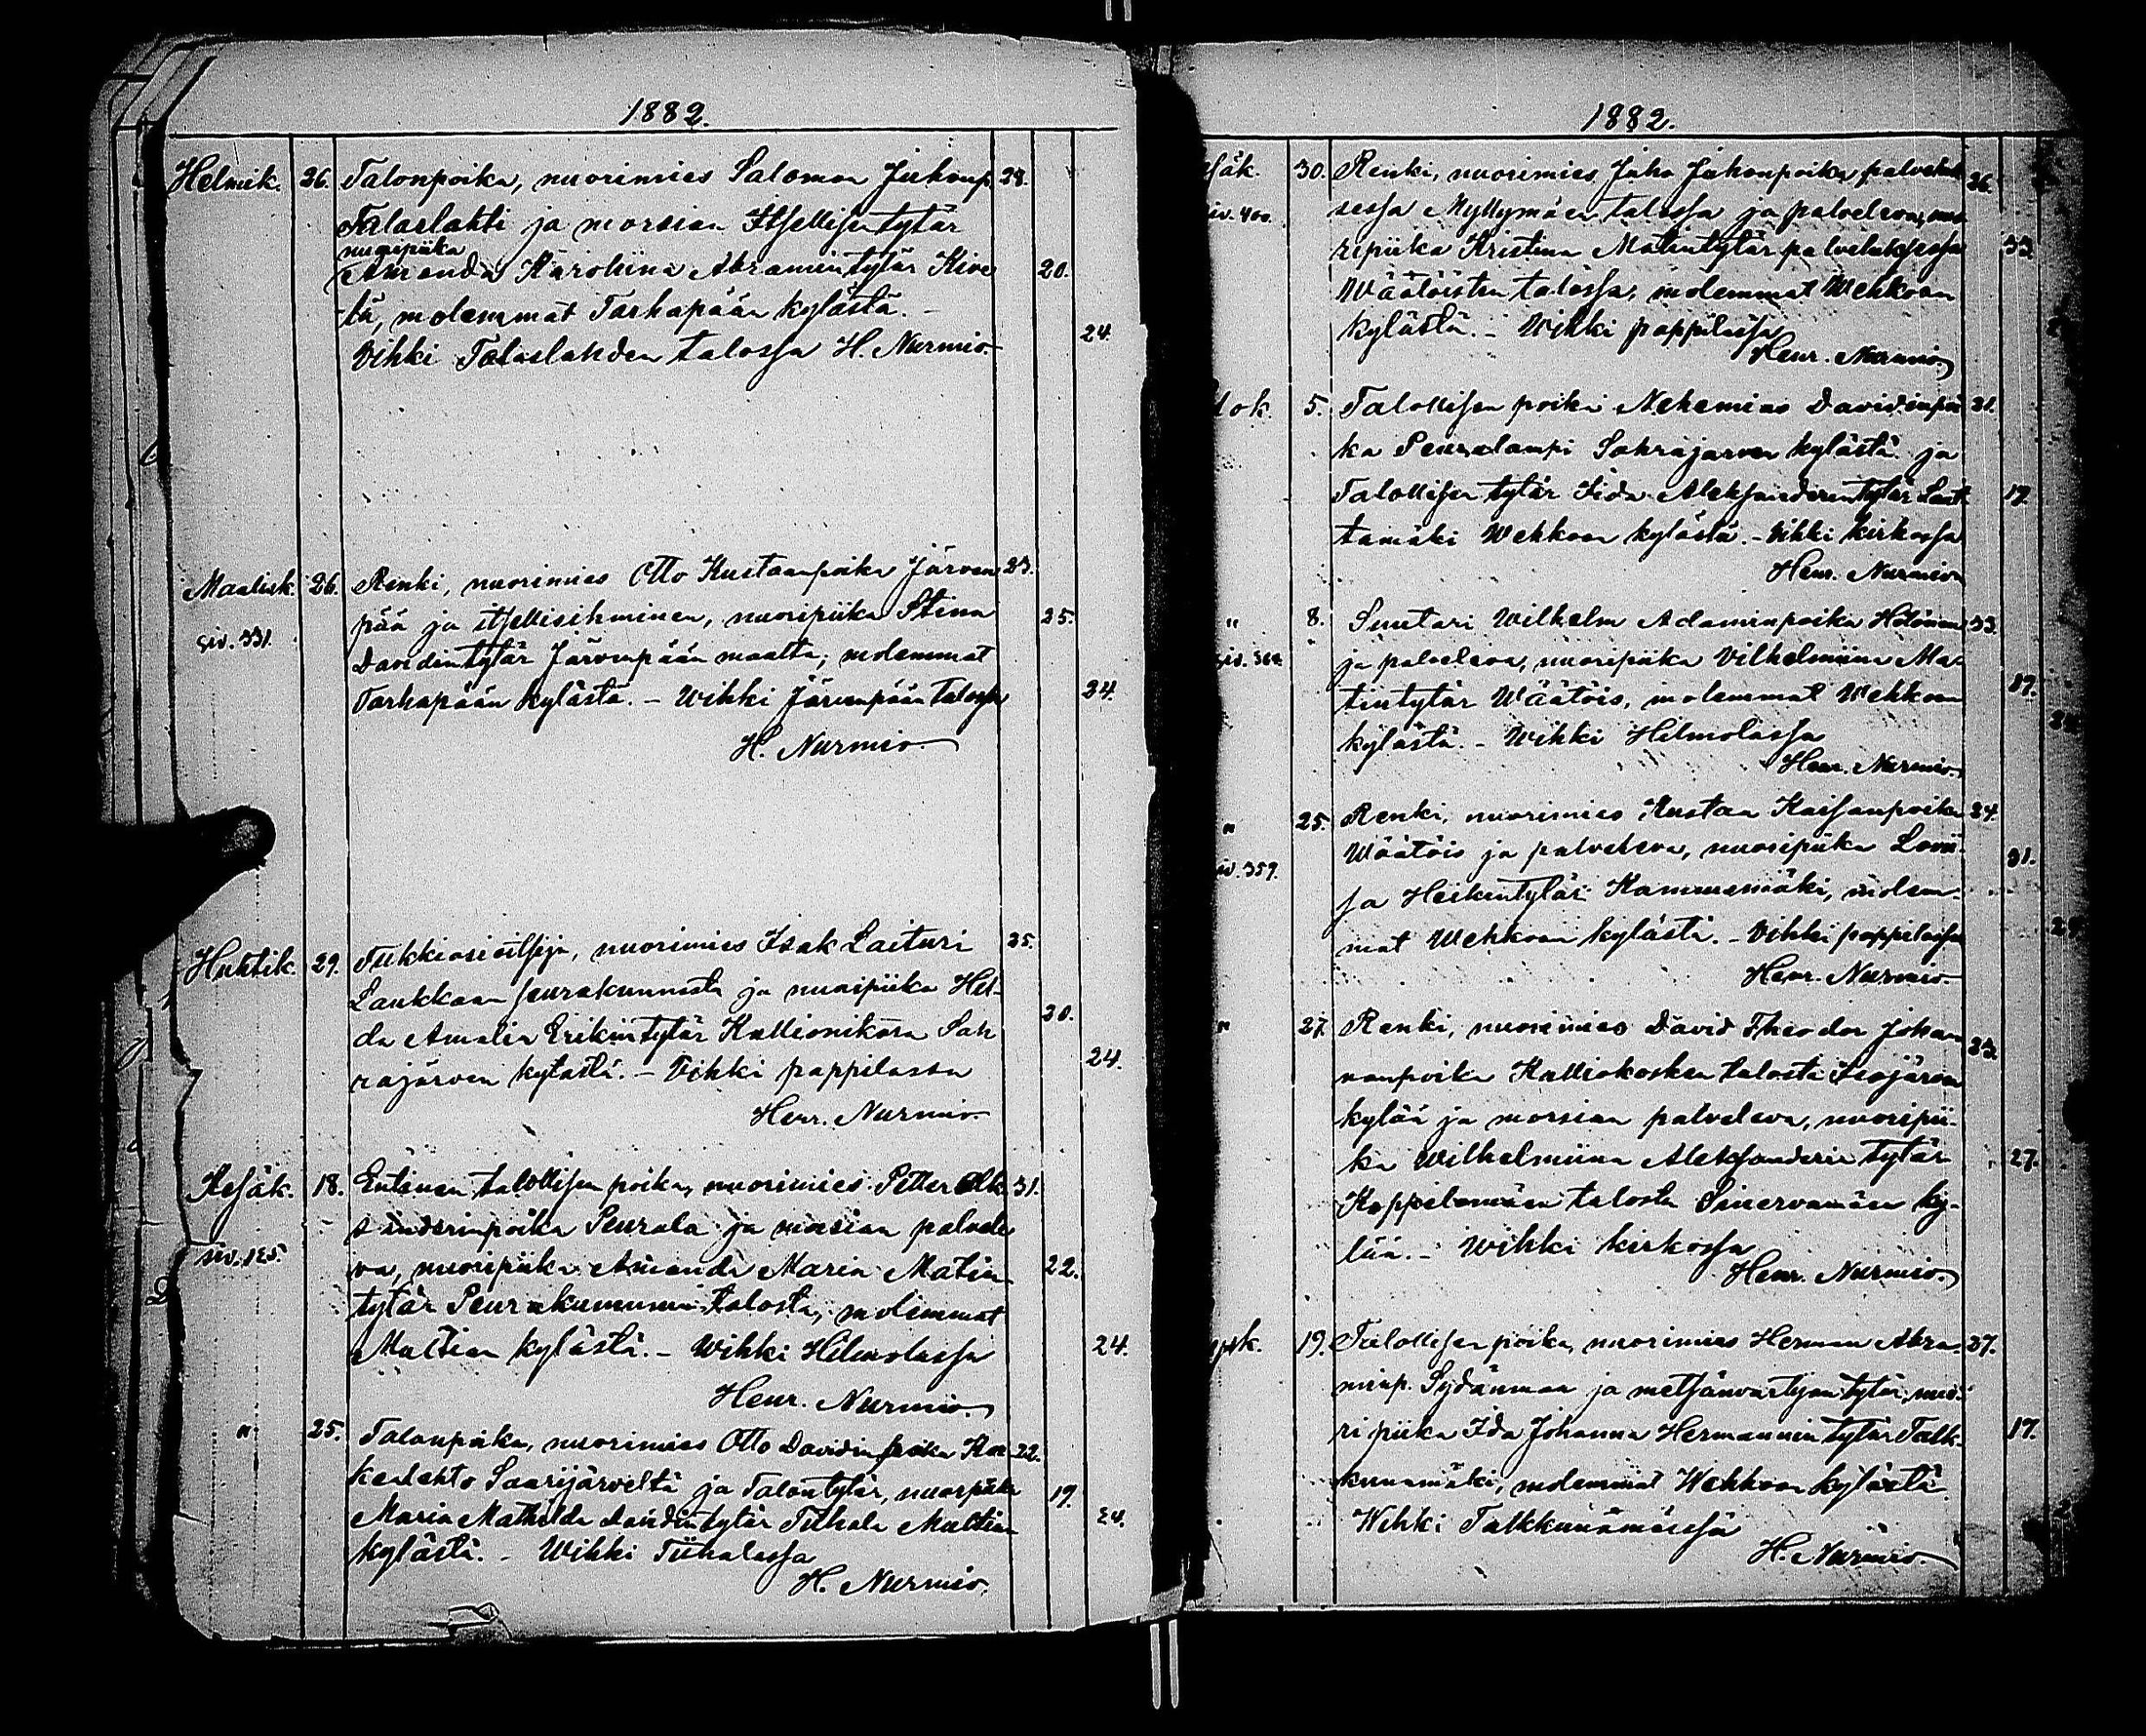 1882.
Helmik. 26. Talonpoika, nuorimies Salomon Juhanp. 28.
Talaslahti ja morsian Itsellisen tytär
nuoripiika
Amanda Karoliina Abramintytär Kive 20.
lä, molemmat Tarhapään kylästä. -
24.
Vihki Talaslahden talossa H. Nurmio.
Maalisk. 26. Renki, nuorimies Otto Kustaanpoika Järven 23.
siv. 331. pää ja itsellisihminen, nuoripiika Stina 25.
Davidintytär Järvenpään maalta, molemmat
Tarhapään kylästä. - Wihki Järvenpään talossa 24.
H. Nurmio.
Huhtik. 29. Tukkiasioitsija, nuorimies Isak Laituri 25.
Laukkaan seurakunnasta ja nuoripiika Hil-
da Amalia Erikintytär Kallionikara Sah 20.
rajärven kylästä. - Vihki pappilassa 24.
Henr. Nurmio.
Kesäk. 18. Entinen talollisen poika, nuorimies Petter Alk 31.
sanderinpoika Peurala ja morsian palvele
siv. 125. va, nuoripiika Amanda Maria Matin 22.
tytär Peurakummun talosta, molemmat
Multian kylästä. - Wihki Hilmolassa 24.
Henr. Nurmio.
" 25. Talonpoika, nuorimies Otto Davidinpoika Kor 22.
kealehto Saarijärveltä ja Talontytär, nuoripiika 19.
Maria Mathilda Davidintytär Tiihala Multian 24.
kylästä. - Wihki Tiihalassa
H. Nurmio.
1882.
säk. 30. Renki, nuorimies Juho Juhonpoika, palveluk 26.
siv. 400. sessa Myllymäen talossa ja palveleva, nuo
ripiika Kristina Matintytär palveluksessa 33
Wäätöisten talossa, molemmat Wehkoon
kylästä. - Wihki pappilassa
Henr. Nurmio.
lok. 5. Talollisen poika Nehemias Davidinpoi 21.
ka Peuralampi Sahrajärven kylästä ja
Talollisen tytär Iida Aleksanderintytär Lart 17.
tamäki Wehkoon kylästä. - Vihki kirkossa
Henr. Nurmio
" 8. Suutari Wilhelm Adaminpoika Hötönen 33.
siv. 364. ja palveleva, nuoripiika Vilhelmiina Ma-
tintytär Wäätöis, molemmat Wehkoon 17.
kylästä. - Wihki Hilmolassa 24.
Henr. Nurmio.
" 25. Renki, nuorimies Kustaa Kaisanpoika 24.
siv. 359. Wäätöis ja palveleva, nuoripiika Lovii- 31.
sa Heikintytär Kammesmäki, molem-
mat Wehkoon kylästä. - Vihki pappilassa 24
Henr. Nurmio.
" 27. Renki, nuorimies David Theodor Johan 23.
nanpoika Kalliokosken talosta Isojärven
kylää ja morsian palveleva, nuoripii-
ka Wilhelmiina Aleksanderin tytär 27.
Koppelomäen talosta Sinervämäen ky-
lää. - Wihki kirkossa
Henr. Nurmio.
19. Talollisen poika, nuorimies Herman Abra- 27.
minp. Sydänmaa ja metsänvartijan tytär, nuo-
ri piika Ida Johanna Hermannin tytär Talk- 17.
kunamäki, molemmat Wehkoon kylästä
Wihki Talkkunämäessä
H. Nurmio.